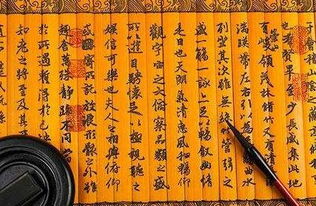 也群賢畢至少長咸集此地
有峻領茂林脩竹又有清流激
湍映帶左右引以為流觴曲水
列坐其次雖無絲竹管弦之
盛一觴一詠亦足以暢敘幽情
是日也天朗氣清惠風和暢仰
觀宇宙之大俯察品類之盛
所以遊目騁懷足以極視聽之
娛信可樂也夫人之相與俯仰
或因寄所託放浪形骸之外雖
趣舍萬殊靜躁不同
於所遇暫得於己
知老之將至及其